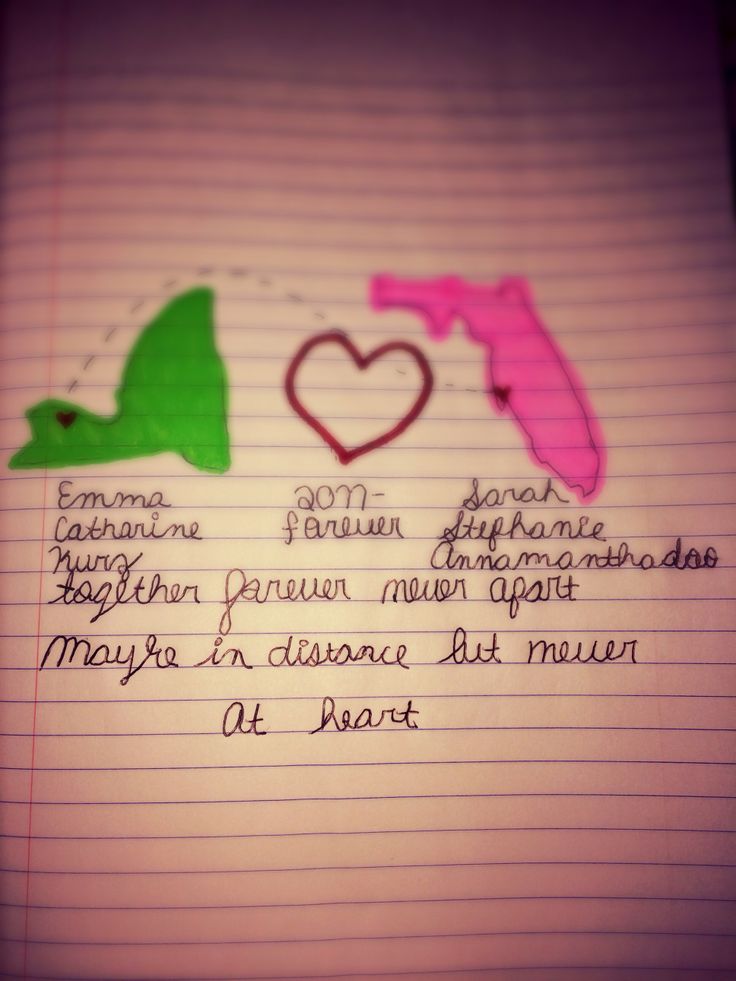 Emma 2011- Sarah
Catharine forever Stephanie
Kurz Annamanthadoo
together forever never apart
Maybe in distance but never
At heart